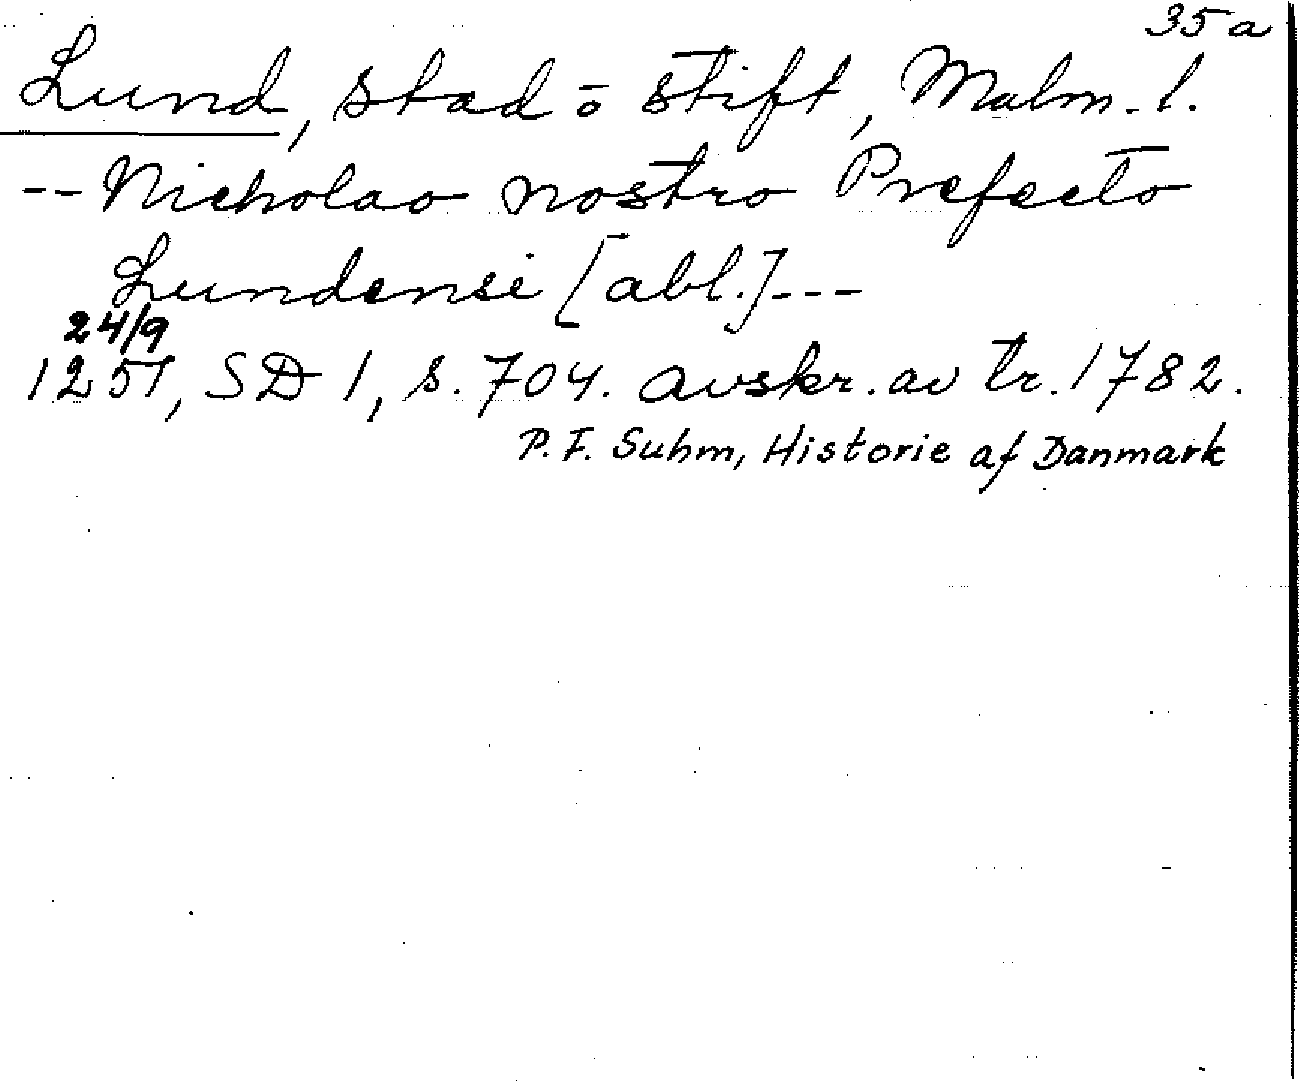 35a
Lund, stad o stift, Malm. l.
-- Nicholao nostro Prefecto
Lundensi [abl.] ---
24/9
1251, SD 1, s. 704. avskr. av tr. 1782.
P. F. Suhm, Historie af Danmark